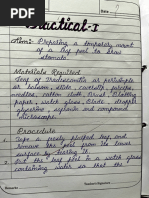 Date ........
Practical-I
Aim:- Preparing a temporary mount
of a leaf peel to show
stomata.
Materials Required
Leaf of Tradescantia or petriolepls
or balsam, slide, coverslip, forceps,
needles, cotton cloth Brush, Blotting
paper, watch glass, blade, dropper
glycerine, safranin and compound
microscope.
Procedure
Take a freshly plucked leaf, and
remove the peel from its lower
surface by tearing it.
Put the leaf peel in a watch glass
containing water so that the